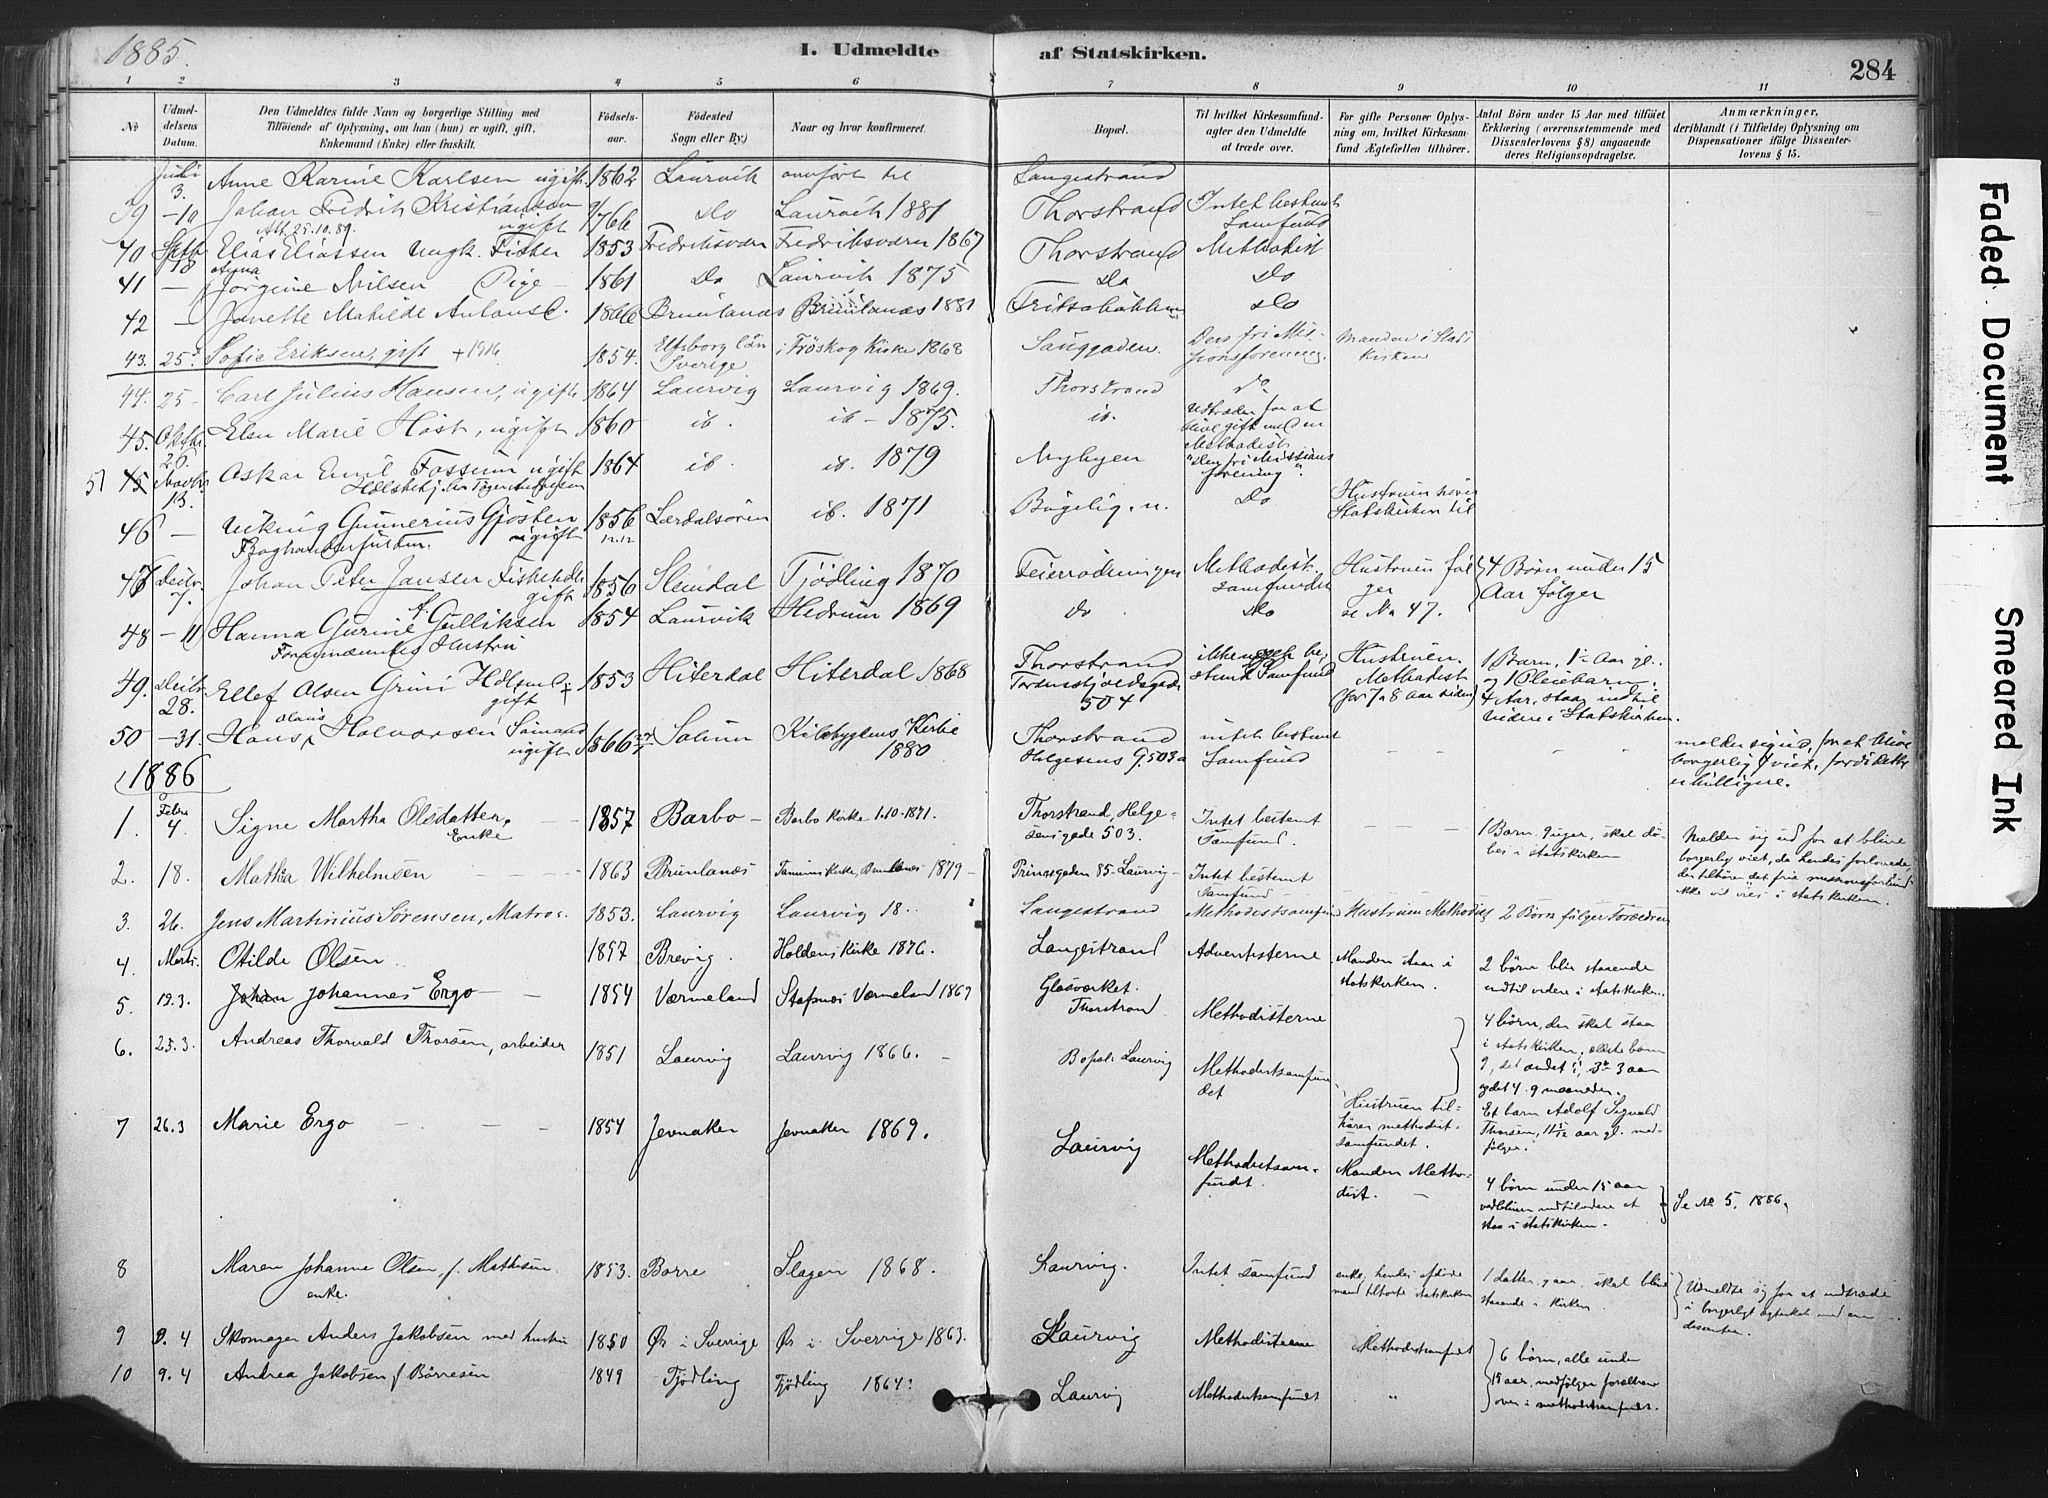 1885.
I. Udmeldte af Statskirken.
284
1 2 3 4 5 6 7 8 9 10 11
No
Udmel-
delsens
Datum.
Den Udmeldtes fulde Navn og borgerlige Stilling med
Tilføiende af Oplysning, om han (hun) er ugift, gift,
Enkemand (Enke) eller fraskilt.
Fødsels-
aar.
Fødested
Sogn eller By.)
Naar og hvor konfirmeret.
Bopæl.
Til hvilket Kirkesamfund-
agter den Udmeldte
at træde over.
For gifte Personer Oplys-
ning om, hvilket Kirkesam-
fund Ægtefællen tilhører.
Antal Børn under 15 Aar med tilføiet
Erklæring (overensstemmende med
Dissenterlovens § 8) angaaende
deres Religionsopdragelse.
Anmærkninger,
deriblandt (i Tilfælde) Oplysning om
Dispensationer ifølge Dissenter-
lovens § 15.
Juli 3. Anne Karine Karlsen ugift. 1862 Laurvik anført til Langestrand
39 -10 Johan Fredrik Kristiansen ugift Do Laurvik 1881 Thorstrand Intet bestemt Samfund
Att. 25.10.89.
40 Septb 18 Elias Eliassen Ungk. Fisker 1853 Fredriksværn Fredriksværn 1867 Thorstrand Methodist
41 — Anna Jørgine Nilsen Pige - 1861 Do Laurvik 1875 Do Do
42 — Janette Mathilde Antons 1866 Brunlanæs Brunlanæs 1881 Do
43. 25. Sofie Eriksen, gift + 1916 1854. Elfsborg Län Sverige i Fröskog Kirke 1868 Langgaden. Den fri Mis- sionsforening. Manden i Stats Kirken
44. 25- Carl Julius Hansen, ugift 1864 Laurvig Laurvig 1869. Thorstrand do
45. Oktbr 20. Elen Marie Høst, ugift 1860 ib. ib - 1875. ib. Udtræder for at blive gift med en Methodist
51 45 Novbr 13. Oskar Emil Fossum ugift 1864 ib. ib. 1879 Nybyen "Den fri Missions forening".
46 — Viking Gunnerius Gjøsten ugift 1856 12.12 Lærdalsören ib. 1871 Bøgelig. n. Do Hustruen hører Statskirken til
47 Decbr 7. Johan Peter Jansen Fiskehdlr gift 1856 Slemdal Tjödling 1870 Feierrødningen Methodist. Samfundet Hustruen føl ger 4 Børn under 15 Aar følger
48 - 11 Hanna Gurine f. Gulliksen 1854 Laurvik Hedrum 1869 Do Do se No 47.
Foranmeldtes Hustru
49. Decbr. 28. Ellef Olsen Grini gift 1853 Hiterdal Hiterdal 1868 Thorstrand Tordenskjoldsgade 504 ikke noget be- stemt Samfund Hustruen. Methodist (for 7 a 8 aar siden) 1 Barn, 1½ Aar gl. og 1 Pleiebarn. 4 Aar, staar indtil videre i Statskirken.
50 -31. Hans Olaus Halvorsen Sømand ugift 1866 Solum Kilebygdens Kirke 1880 Thorstrand Helgesens G. 503a intet bestemt Samfund melder sig ud, for at blive borgerlig viet, fordi dette er billigere.
1886
1. Febr 4. Signe Martha Olsdatter, Enke 1857 Barbo - Barbo Kirke 1.10-1871. Thorstrand, Helge- sensgade 503. Intet bestemt Samfund. 1 Barn, 9 uger, skal dø- bes i statskirken Melder sig ud for at blive borgerlig viet, da hendes forlovede, der tilhører det frie missionsforbund ikke vil vies i statskirken.
2. 18. Mathia Wilhelmsen 1863 Brunlanæs Tanum Kirke, Brunlanæs 1879 - Prinsegaden 85 - Laurvig - Intet bestemt Samfund
3. 26. Jens Martinius Sørensen, Matros. 1853. Laurvig Laurvig 18. Langestrand Methodistsamfund Hustruen Methodist 2 Børn følger Forældrene
4. Marts. Otilde Olsen 1857 Brevig. Holdens Kirke 1876. Langestrand Adventisterne Manden staar i statskirken. 2 børn blir staaende indtil videre i statskirken.
5. 19.3. Johan Johannes Ergo 1854 Værmeland Stafnæs Værmeland 1869 Glasværket. Thorstrand Methodisterne 4 børn, der skal staa i statskirken, ældste barn 9, det andet 5½, 3die 3 aar og det 4. 9 maaneder.
6. 25.3. Andreas Thorvald Thorsen, arbeider 1851 Laurvig Laurvig 1866. - Bopæl: Laurvig Methodistsamfun det Hustruen til- hører methodist- samfundet. Et barn Adolf Sigvald Thorsen, 11 5/12 aar gl. med- følger.
7 26.3 Marie Ergo 1854 Jevnaker Jevnaker 1869. Laurvig Methodistsam- fundet. Manden Metho- dist. 4 børn under 15 aar vedbliver indtilvidere at staa i statskirken. Se No 5, 1886.
8 Maren Johanne Olsen, f. Mathisen enke. 1853. Borre Slagen 1868. Laurvig. Intet samfund enke, hendes afdøde mand tilhørte statskirken 1 datter, 9 aar, skal blive staaende i kirken. Udmeldte sig for at indtræde i borgerligt ægteskab med en dissenter.
9 9.4 Skomager Anders Jakobsen med hustru 1850 Ør i Sverrige Ør i Sverrige 1863. Laurvig Methodisterne Methodistsamfundet 6 børn, alle under
10 9.4 Andrea Jakobsen f. Børresen 1849 Tjødling Tjødling 1864? Laurvig Methodistsamfundet " 15 aar, medfølger forældrene over i methodistsamfundet.
Faded Document
Smeared Ink